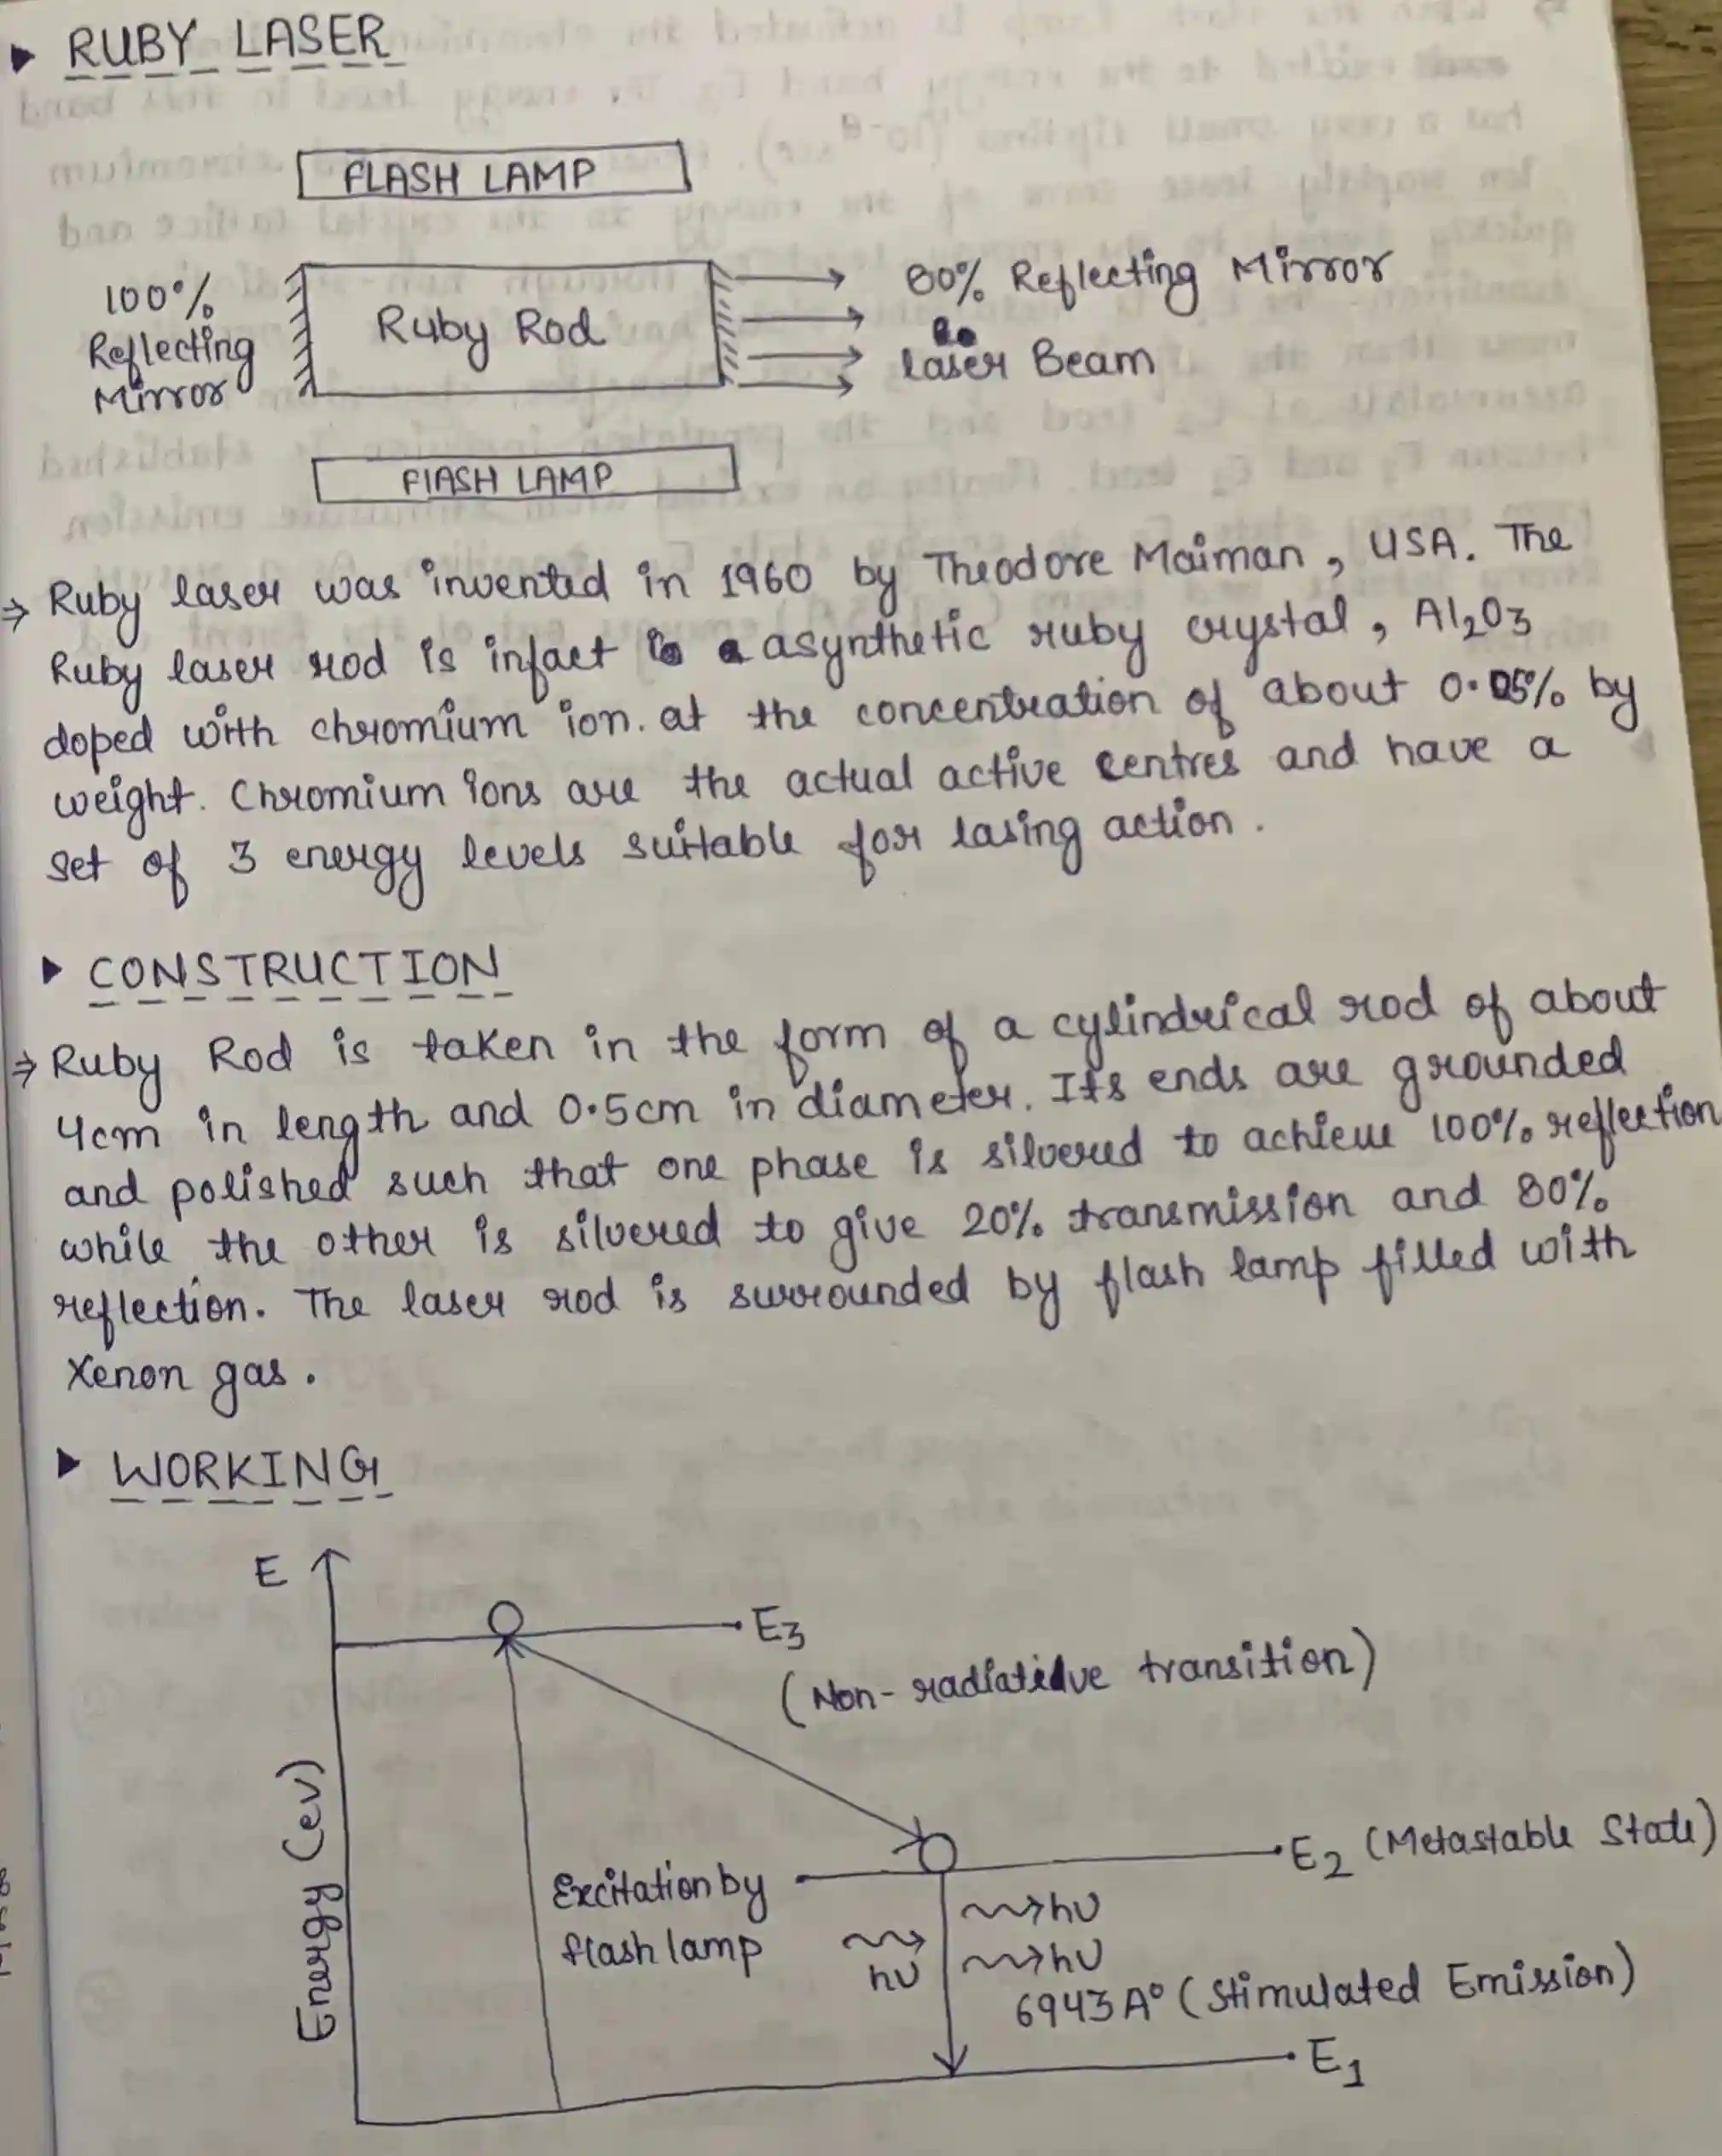 RUBY LASER
FLASH LAMP
100%
Reflecting
Mirror
Ruby Rod
80% Reflecting Mirror
laser Beam
FlASH LAMP
⇒ Ruby laser was invented in 1960 by Theodore Maiman, USA. The
Ruby laser rod is infact asynthetic ruby crystal, Al2O3
doped with chromium ion. at the concentration of about 0.05% by
weight. Chromium ions are the actual active centres and have a
set of 3 energy levels suitable for lasing action.
CONSTRUCTION
⇒ Ruby Rod is taken in the form of a cylindrical rod of about
4cm in length and 0.5cm in diameter. Its ends are grounded
and polished such that one phase is silvered to achieve 100% reflection
while the other is silvered to give 20% transmission and 80%
reflection. The laser rod is surrounded by flash lamp filled with
Xenon gas.
WORKING
E
E3
(Non-radiative transition)
Energy (ev)
E2 (Metastable State)
Excitation by
flash lamp
hυ
hυ
hυ
6943 A° (Stimulated Emission)
E1